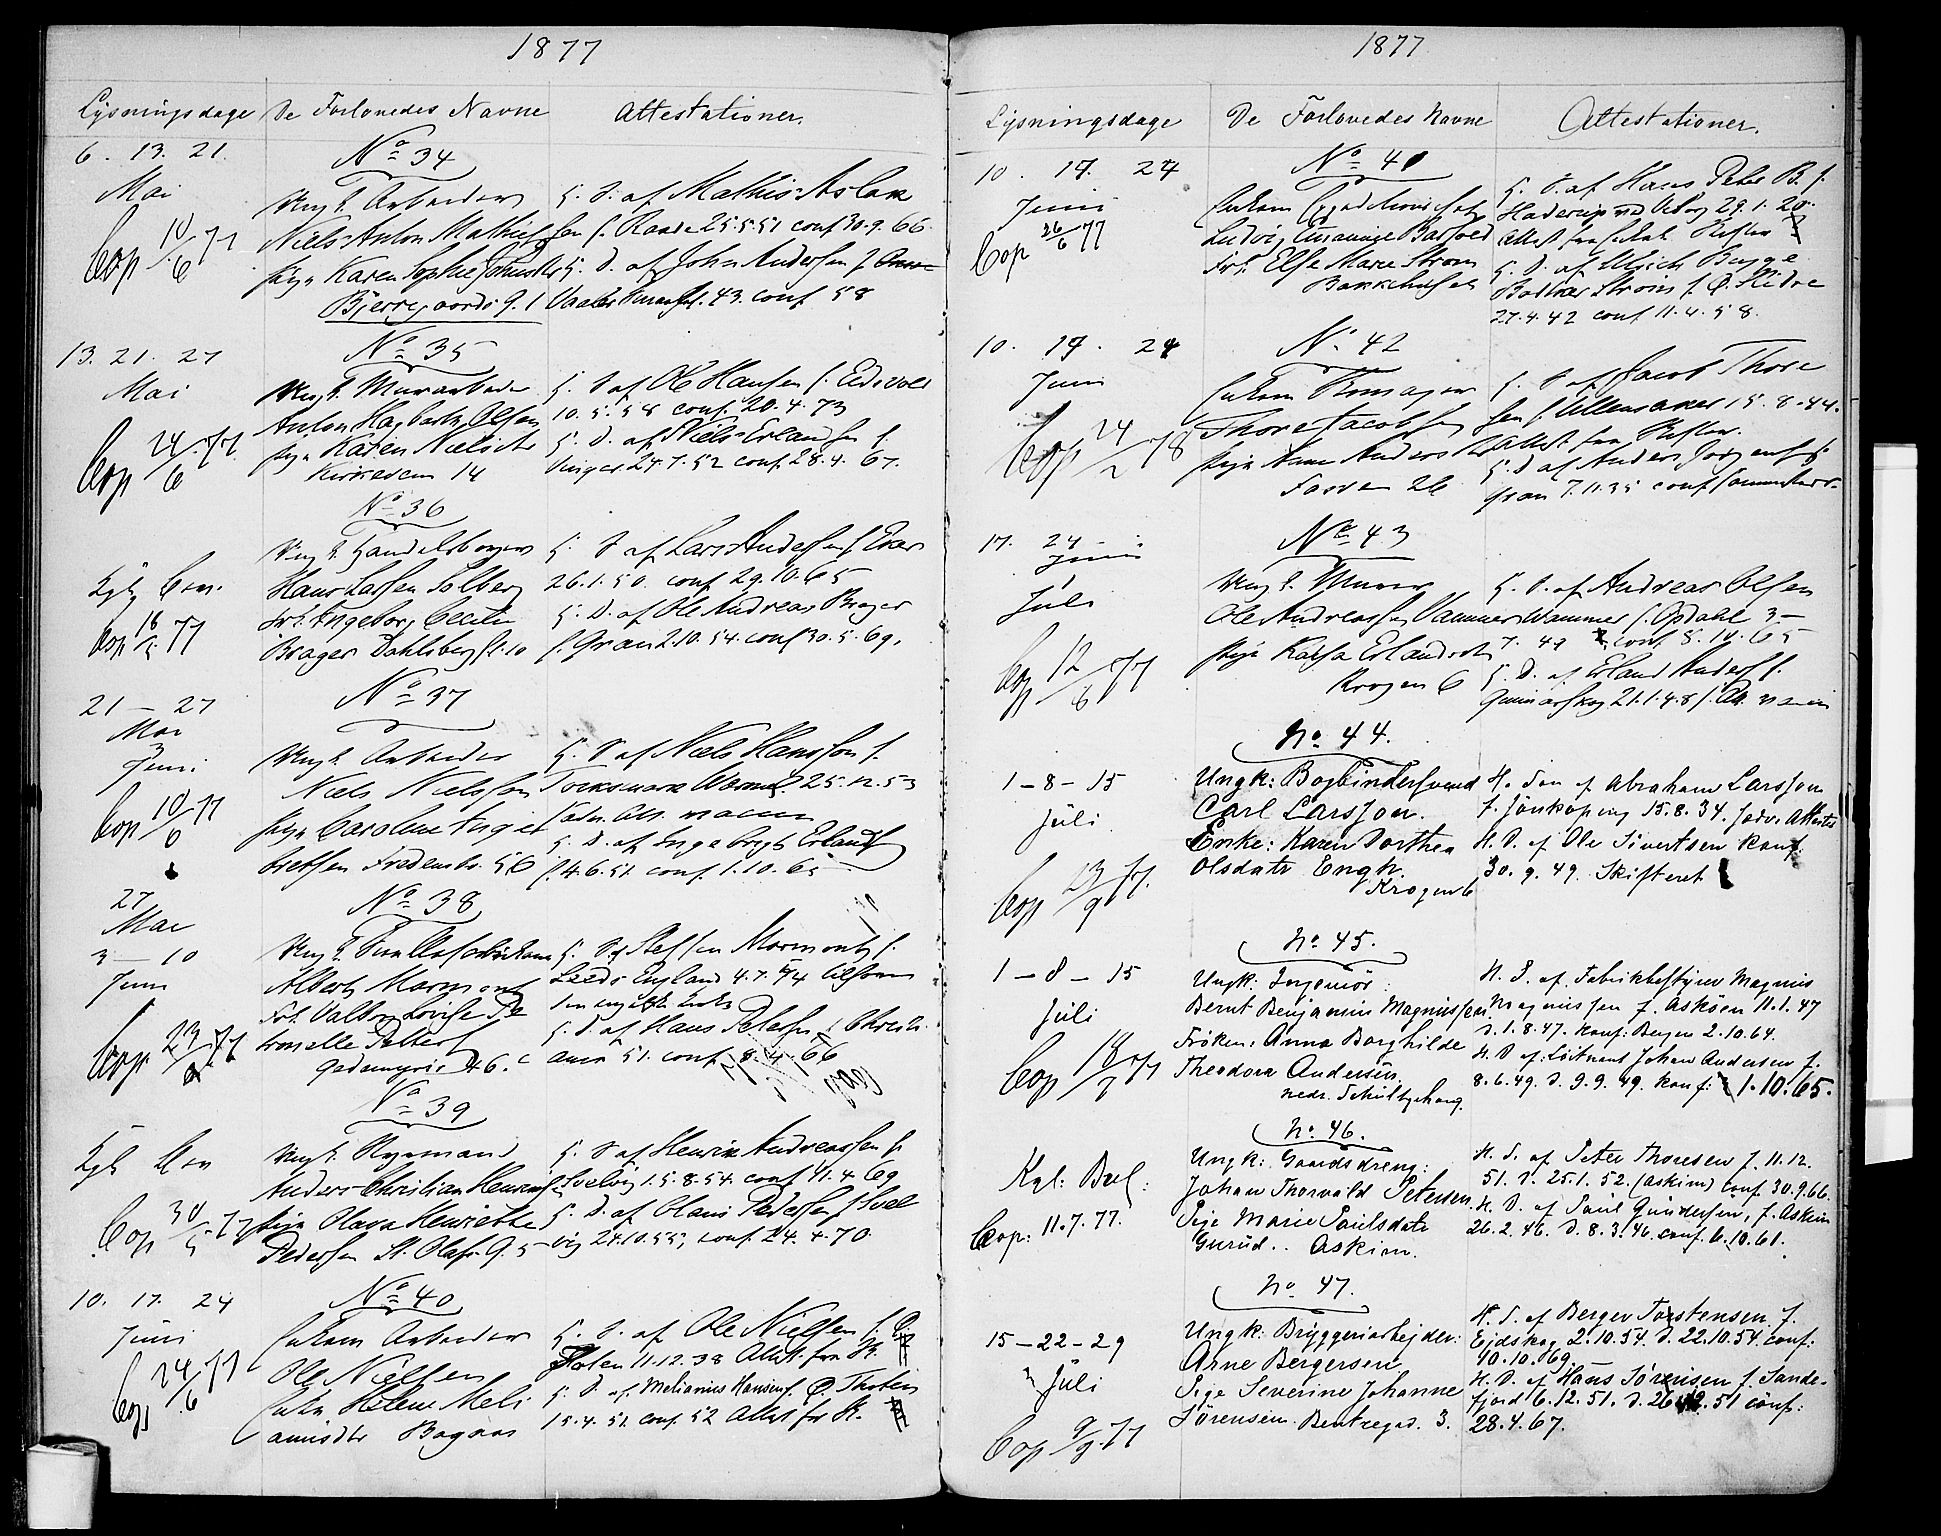 1877
Lysningsdage De Forlovedes Navne Attestationer.
6. 13. 21. Mai
Cop 10/6 77
No 34
Ungk. Arbeider
Niels Anton Mathiessen
Pige Karen Sophie
Bjerregaards g. 1
G. S. af Mathis Aslak
sen f. Raade 25.5.51 conf 30.9.66.
G. D. af John Andersen f.
Vaaler 43. conf 58
13. 21. 27
Mai
Cop 24/6 77.
No 35
Ungk. Murarbeider
Anton Hagbarth Olsen
Pige Karen Nielsdtr
Kirkeveien 14
G. S. af Ole Hansen f. Eidsvold
10.5.58 conf. 20.4.73
G. D. af Niels Erlandsen f.
Vinger 24.7.52 conf. 28.4.67.
Kgl. Bev.
Cop 18/5 77
No 36
Ungk. Handelsborger
Hans Larsen Solberg
Frk. Ingeborg Cecilie
Brager Dahlsberg st. 10
G. S. af Lars Andersen f.
26.1.50. conf 29.10.65
G. D. af Ole Andreas Brager
f. Gran 2.10.54. conf 30.5.69.
21 – 27
Mai
3
Juni
Cop 10/6 77
No 37
Ungk. Arbeider
Niels Nielssen
Pige Caroline Inge
bretsen Fredensb. 56
G. S. af Niels Hansson f.
Torksmark 25.12.53
G. D. af Ingebrigt Erlands
f. 4.6.51. conf. 1.10.65
27
Mai
3 – 10
Juni
Cop 23/ 77
No 38
Ungk.
Albert Marmont
Frk. Valborg Lovise Pe
tronelle Petters
Gedemyrs 46. c
G. S. af Steffen Marmont f.
Leeds England 4.7.
den engelske Kirke
G. D. af Hans Petersen f. Christi
ania 51. conf. 8.4.66
Kgl. Bev
Cop 30/5 77
No 39
Ungk.
Anders Christian Henriksen
Pige Olava Henriette
Pedersen St. Olafs g. 5
G. S. af Henrik Andreassen f.
Svelvig 1.5.8.54. conf 11.4.69
G. D. af Olaus Pedersen f. Svel
vig 24.10.55, conf. 24.4.70.
10. 17. 24
Juni
Cop 24/6 77
No 40
Enkem. Arbeider
Ole Nielsen
Enke Helene Meli
anusdtr Bagaas
G. S. af Ole Nielsen f.
Holen 11.12.38 Attest fra Sk.
G. D. af Melianus Hansen f. Ø. Thoten
15.4.51. conf. 52 Attest fr Sk.
1877
Lysningsdage De Forlovedes Navne Attestationer.
10. 17. 24
Juni
Cop 26/6 77
No 41
Enkem.
Ludvig Barfoed
Frk. Else Marie Strøm
Bakkehusene
G. S. af Hans Peter B. f.
Haderup ved Viborg 29.1.20.
Attest fra
G. D. af Ulrich Bugge
Strøm f. Ø. Slidre
27.4.42 conf 11.4.58.
10. 17. 24
Juni
Cop 24/2 78
No 42
Enkem.
Thore Jacobsen
Pige Anne Andersd
Fossv 26
G. S. af Jacob Thore
sen f. Ullensaker 15.8.44.
Attest fra Skiften.
G. D. af Anders Jørgensen f.
Gran 7.11.35 conf
17. 24 –
Juni
Juli
Cop 12/8 77
No 43
Ungk. Murer
Ole Andreassen Vammer
Pige Kajsa Erlandsdtr
Krogen 6
G. S. af Andreas Olsen
Wammer f. Opdahl 3–
7.49 conf. 5.10.65
G. D. af Erland Anders f.
Gunnarskog 21.1.48
1 – 8 – 15
Juli
Cop 23/9 77.
No. 44.
Ungk: Bogbindersvend
Carl Larsson.
Enke: Karen Dorthea
Olsdatr Engh.
Krogen 6
H. Søn af Abraham Larsson
f. Jönköping 15.8.34. Jødv. Attester
H. D. af Ole Sivertsen konf:
30.9.49. Skifteret
1 – 8 – 15
Juli
Cop 18/7 77
No. 45.
Ungk: Ingeniör:
Bernt Benjamin Magnussen.
Frøken: Anna Borghilde
Theodora Andersen.
nedr. Schultzehaug.
H. S. af Fabrikbestyrer Magnus
Magnussen f. Askøen 11.1.47
d. 1.8.47. konf: Bergen 2.10.64.
H. D. af: Løitnant Johan Andersen f.
8.6.49. d. 9.9.49. konf: 1.10.65.
Kgl: Bevl:
Cop: 11.7.77.
No. 46.
Ungk: Gaardsdreng:
Johan Thorvald Petersen.
Pige Marie Paulsdatr
Gurud.. Askim.
H. S. af Peter Thoresen f. 11.12.
51. d. 25.1.52. (Askim) conf. 30.9.66.
H. D. af Paul Gundersen, f. Askim
26.2.46. d. 8.3.46. conf. 6.10.61.
15 – 22 – 29
Juli
Cop 9/9 77
No. 47.
Ungk: Bryggeriarbejder:
Arne Bergersen
Pige Severine Johanne
Sørensen. Bentzegad. 3.
H. S. af Berger Torstensen f.
Ejdskog 2.10.54. d. 22.10.54. conf:
10.10.69
H. D. af Hans Sørensen f. Sande-
fjord 6.12.51. d. 26.12.51 conf:
28.4.67.